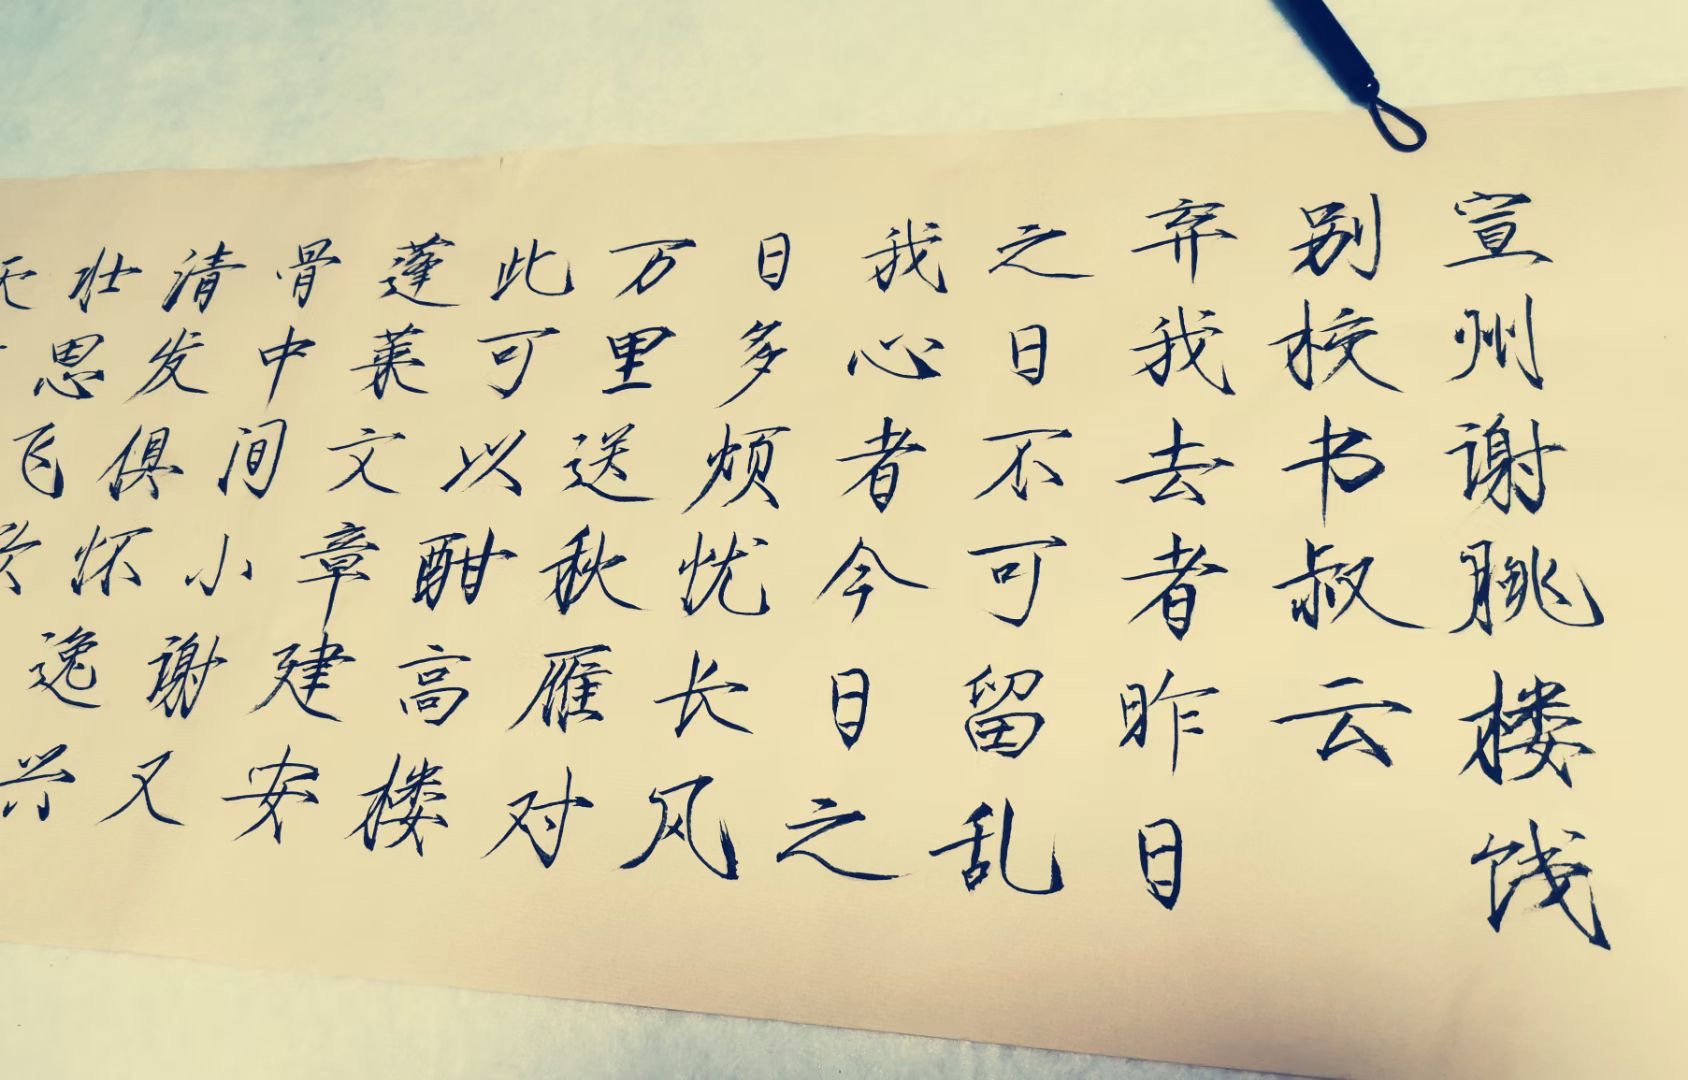 宣州谢朓楼饯
别校书叔云
弃我去者昨日
之日不可留乱
我心者今日之
日多烦忧长风
万里送秋雁对
此可以酣高楼
蓬莱文章建安
骨中间小谢又
清发俱怀逸兴
壮思飞